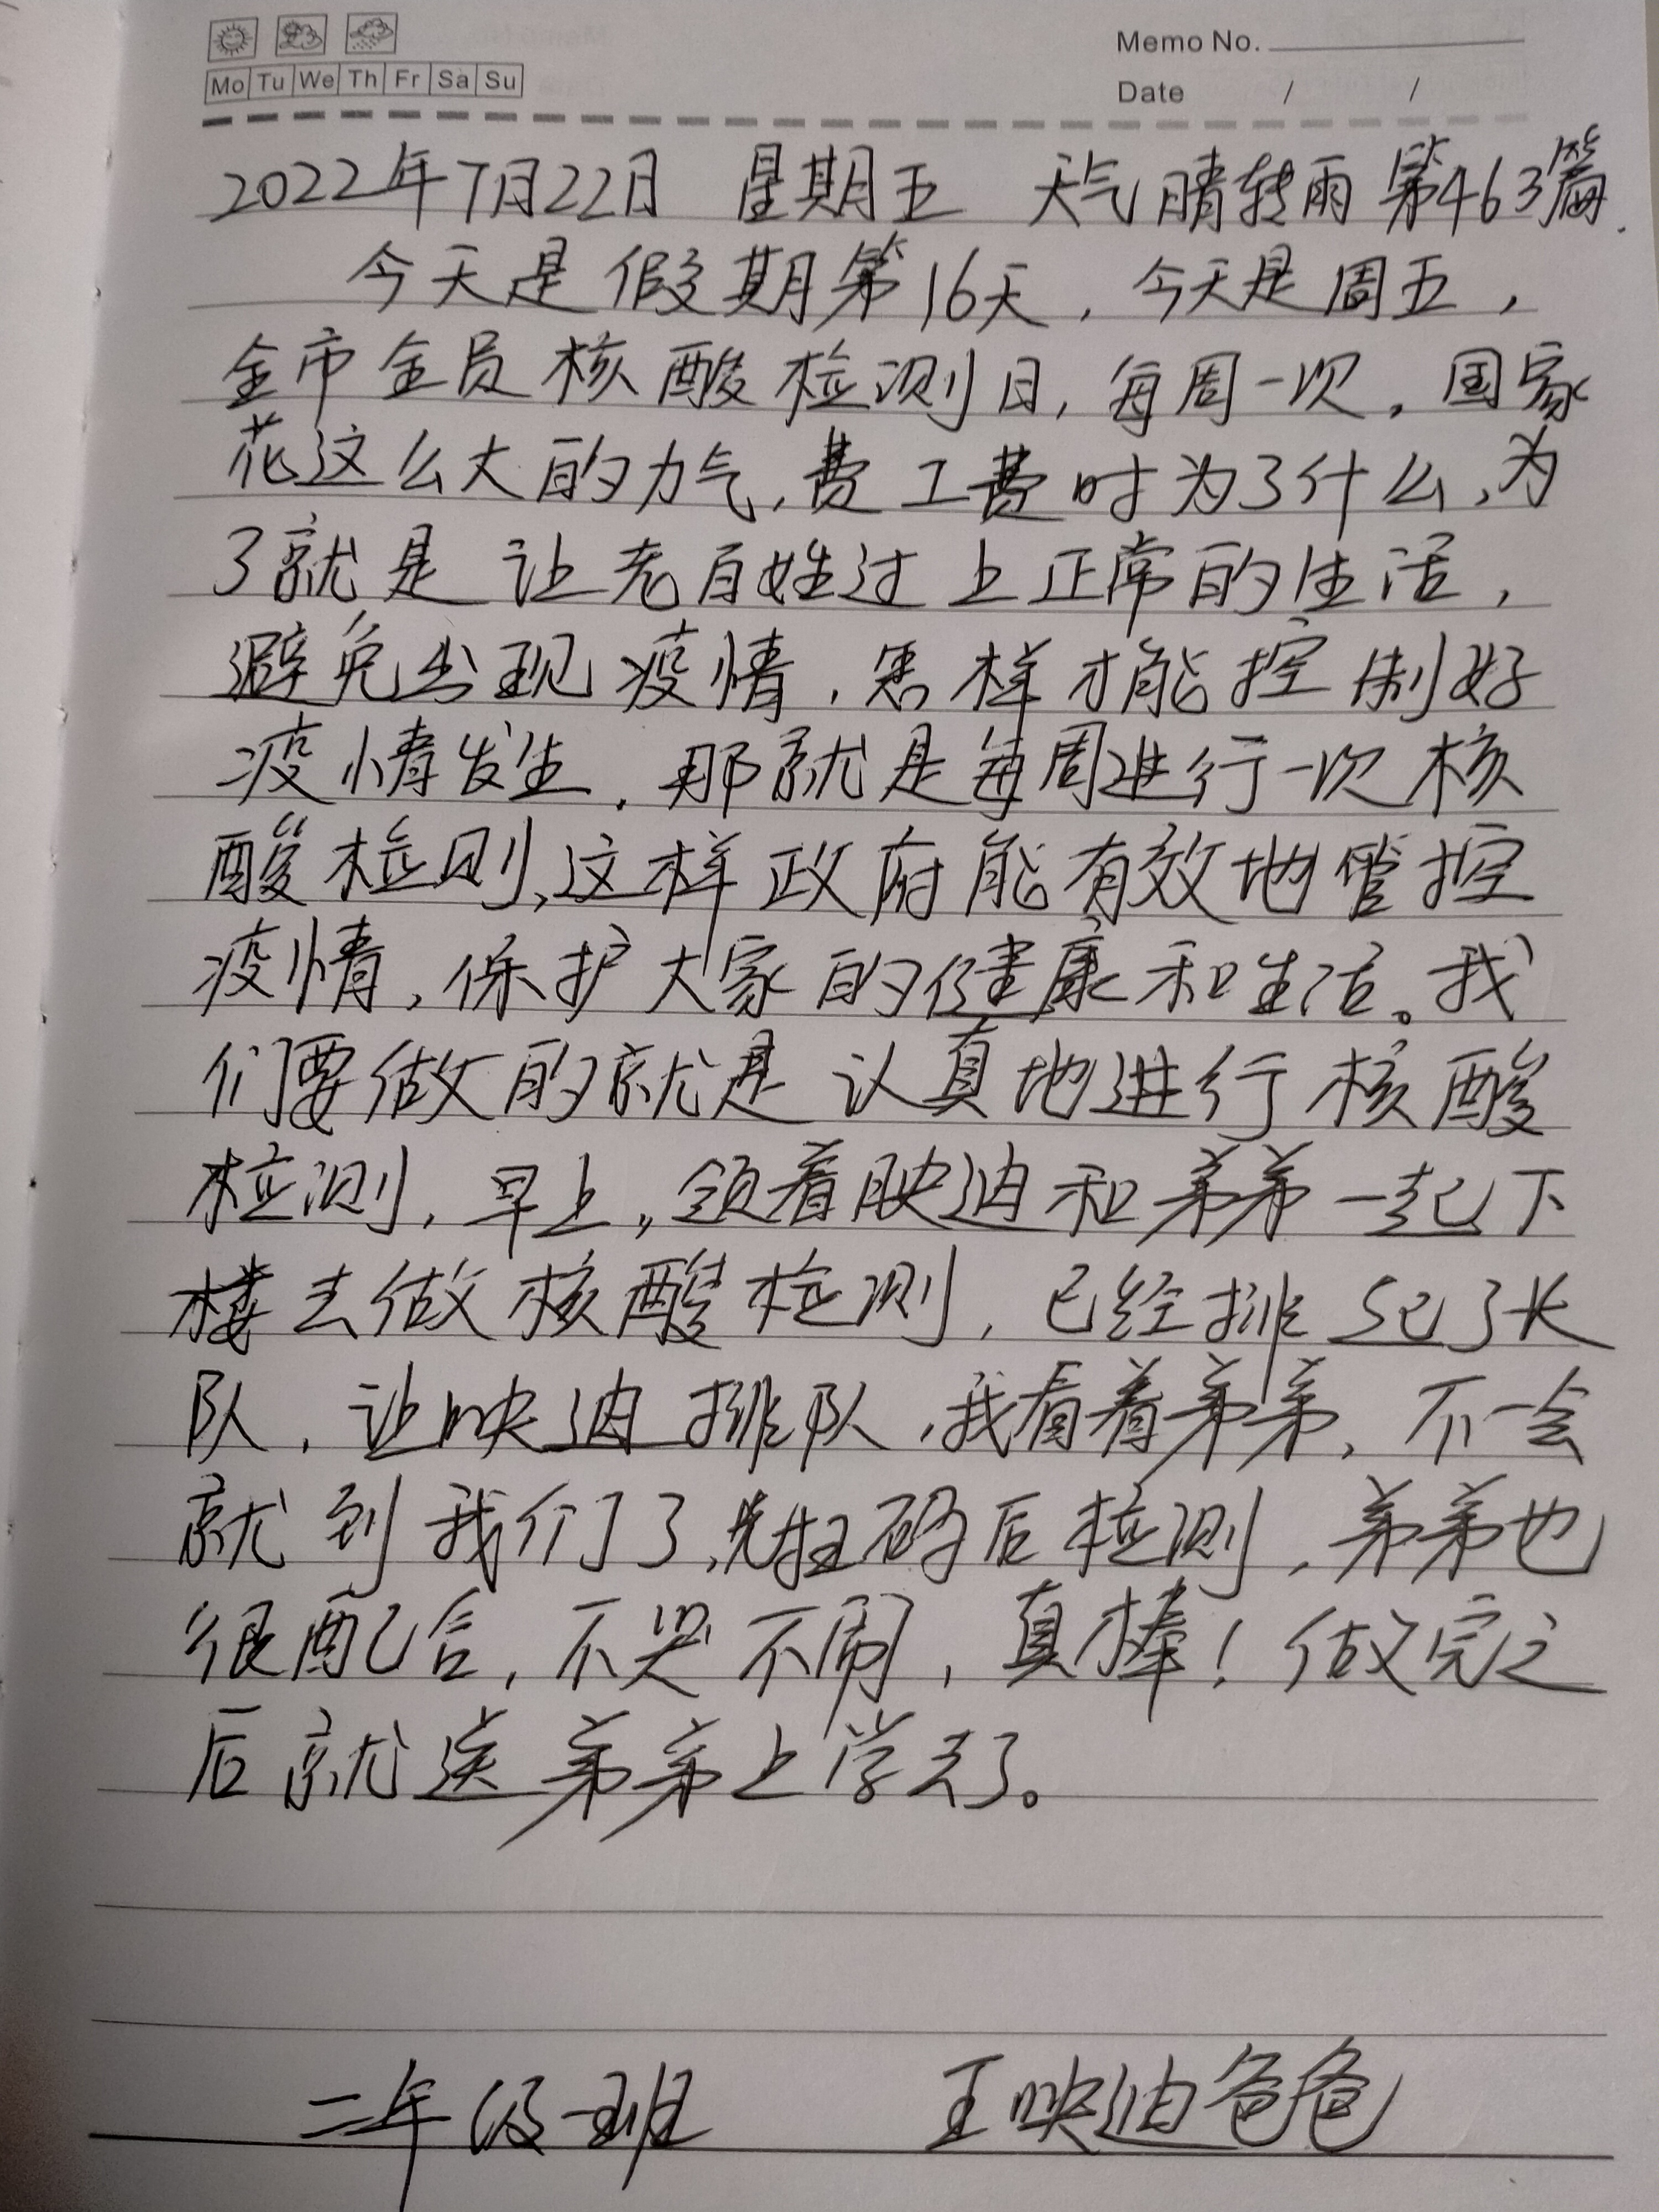 Memo No.
Mo Tu We Th Fr Sa Su
Date / /
2022年7月22日 星期五 天气晴转雨 第463篇.
今天是假期第16天，今天是周五，
全市全员核酸检测日，每周一次。国家
花这么大的力气，费工费时为了什么，为
了就是让老百姓过上正常的生活，
避免出现疫情，怎样才能控制好
疫情发生，那就是每周进行一次核
酸检测，这样政府能有效地管控
疫情，保护大家的健康和生活。我
们要做的就是认真地进行核酸
检测，早上，领着映迪和弟弟一起下
楼去做核酸检测，已经排起了长
队，让映迪排队，我看着弟弟，不一会
就到我们了，先扫码后检测，弟弟也
很配合，不哭不闹，真棒！做完之
后就送弟弟上学去了。
二年级一班 王映迪爸爸